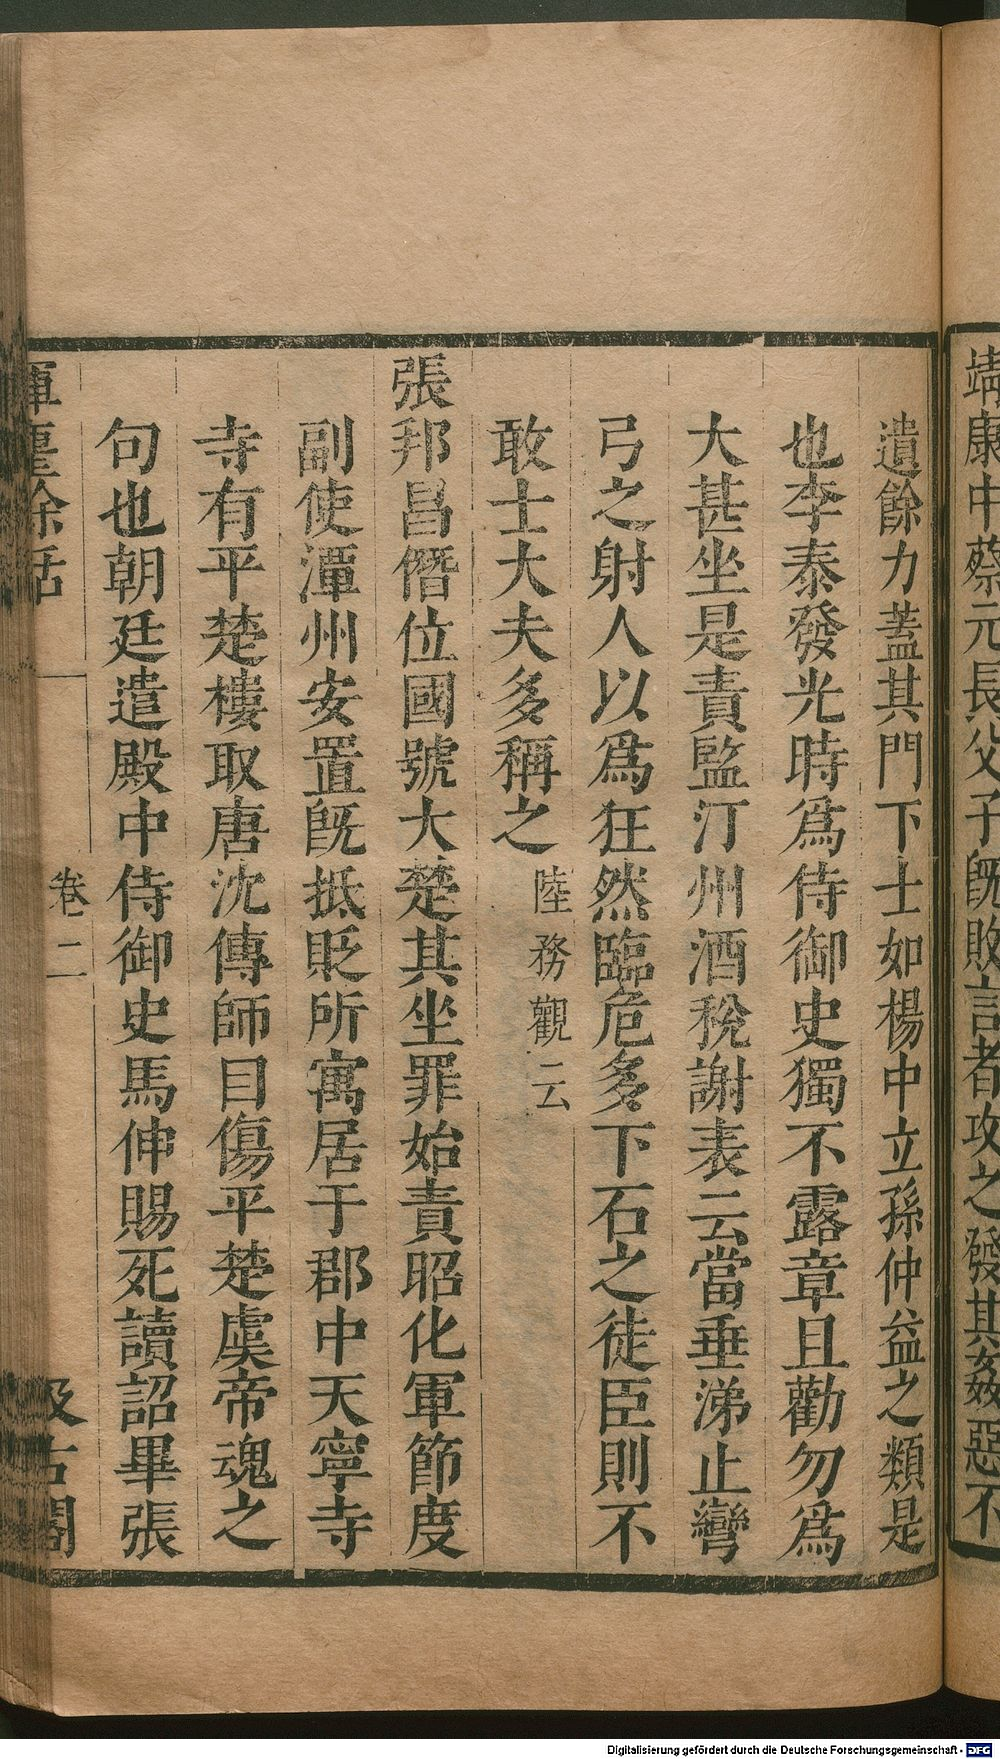 靖康中蔡元長父子旣敗言者攻之發其姦惡不
遺餘力蓋其門下士如楊中立孫仲益之類是
也李泰發光時爲侍御史獨不露章且勸勿爲
大甚坐是責監汀州酒稅謝表云當垂涕止彎
弓之射人以爲狂然臨危多下石之徒臣則不
敢士大夫多稱之陸務觀云
張邦昌僭位國號大楚其坐罪始責昭化軍節度
副使潭州安置旣抵貶所寓居于郡中天寧寺
寺有平楚樓取唐沈傳師目傷平楚虞帝魂之
句也朝廷遣殿中侍御史馬伸賜死讀詔畢張
揮麈餘話 卷二 汲古閣
Digitalisierung gefördert durch die Deutsche Forschungsgemeinschaft - DFG